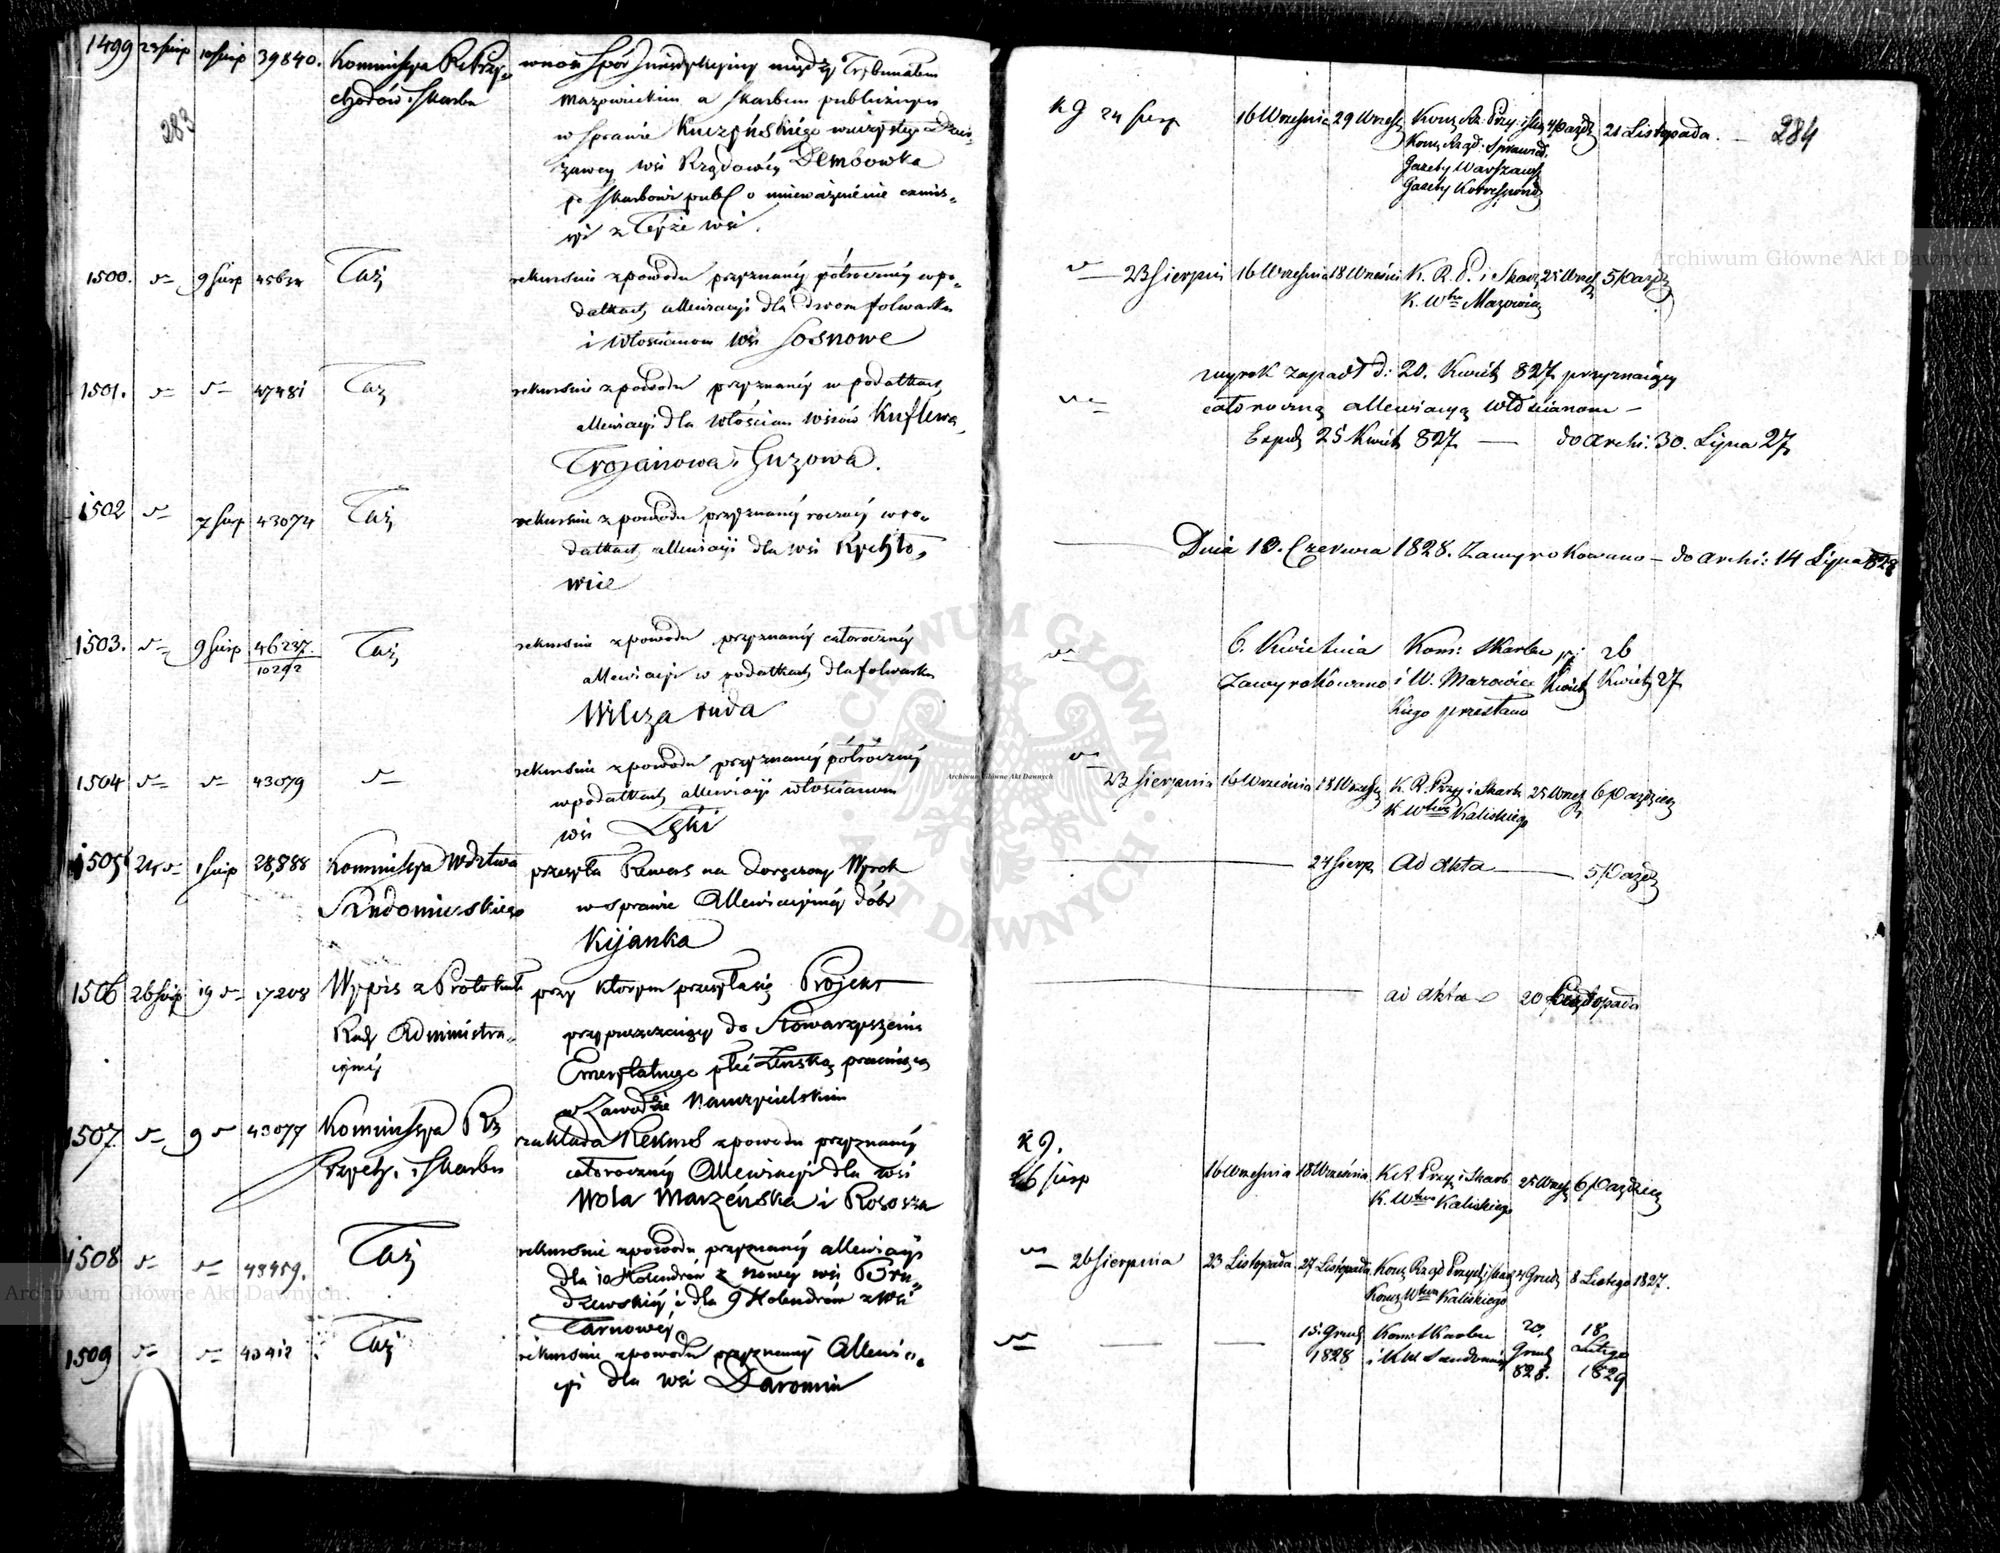 1499 23 Sierp 10 Sierp 39840. Kommissya R Przy-
chodów i Skarbu
283
wnosi Spór Jurisdykcyiny między Trybunałem
Mazowieckim a Skarbem publicznym
w sprawie wieczystego Dzier-
żawcy wsi Rządowéy Dembowka
po Skarbowi publ o unieważnienie
z Teyże wsi.
1500. d– 9 Sierp Taż
rekursuie z powodu przyznanéy półrocznéy w po-
datkach allewiacyi dla Dwom folwarku
i Włoscianom Wsi Sosnowe
1501. d– d– 47481 Taż
rekursuie z powodu przyznanéy w podatkach
allewiacyi dla Włościan wsiów Kuflewa,
Trojanowa i Guzowa.
1502 d– 7 Sierp 43074 Taż
rekursuie z powodu przyznanéy rocznéy w po-
datkach allewiacyi dla wsi Rychło-
wice
1503. d– 9 Sierp 46237. Taż
10292
rekursuie z powodu przyznanéy całorocznéy
allewiacyi w podatkach dla folwarku
Wilcza ruda
1504 d– d– 43079 d–
rekursuie z powodu przyznanéy półrocznéy
w podatkach allewiacyi włościanom
wsi Łęki
1505 24 d– 1 Sierp 28,888 Kommissya Wdztwa
Sandomirskiego
przesyła Rewers na doręczony Wyrok
w sprawie Allewiacyinéy dóbr
Kijanka
1506 26 Sierp 19 d– 17208 Wypis z Protokułu
Rady Administra-
cyinéy
przy którym przesyła się Projekt
przypuszczaiący do Stowarzyszenia
Emerytalnego płeć Żeńską pracuiącą
w Zawodzie Nauczycielskim
1507. d– 9 d– 43077 Kommissya Rz
Przych. i Skarbu
zakłada Rekurs z powodu przyznanéy
całorocznéy Allewiacyi dla wsi
Wola Marzeńska i Rososza
1508 d– d– 48459. Taż
rekursuie z powodu przyznanéy allewiacyi
dla 10 Holendrów z Nowéy wsi Pru-
dzewskiéy, i dla 9 Holendrów z Wsi
Tarnowéy
1509 d– d– 43412 Taż
rekursuie z powodu przyznanéy Allewia-
cyi dla wsi Daromin
284
K J 24 Sierp 16 Września 29 Wrześ Kom Rz. Przy. i Skar 4 Paźdz 21 Listopada. –
Kom Rząd: Sprawied.
Gazety Warszaws
Gazety Korrespond
d– 23 Sierpni 16 Września 18 Wrześni K. R. P. i Skar 25 Wrześ 5 Paźdz
K. Wtwa Mazowiec
wyrok zapadł d: 20. Kwiet 827 przyznaiący
d– całoroczną allewiacyą Włościanom –
Exped 25 Kwiet 827 — do Archi: 30. Lipca 27
Dnia 10. Czerwca 1828. Zawyrokowano – do Archi: 14 Lipca 828
d– 6. Kwietnia Kom: Skarbu 26
Zawyrokowano i W. Mazowiec Kwiet Kwiet 27
kiego przesłano
d– 23 Sierpnia 16 Września 18 Wrześ K. R. Przy i Skarb 25 Wrześ 6 Paździer
K Wtwa Kaliskiego
24 Sierp Ad Akta 5 Paźdz
ad Akta 20 Listopada
K J.
26 Sierp 16 Września 18 Września K R Przy i Skarb 25 Wrześ 6 Paździer
K. Wtwa Kaliskiego
d– 26 Sierpnia 23 Listopada 27 Listopada Kom Rząd Przych i Skar 4 Grud 8 Lutego 1827.
Kom Wtwa Kaliskiego
d– 15. Grud Kom Skarbu 20. 18
1828 i KW Sandomir Grud Lutego
828. 1829
Archiwum Główne Akt Dawnych
Archiwum Główne Akt Dawnych
Archiwum Główne Akt Dawnych
ARCHIWUM GŁÓWNE · AKT DAWNYCH ·